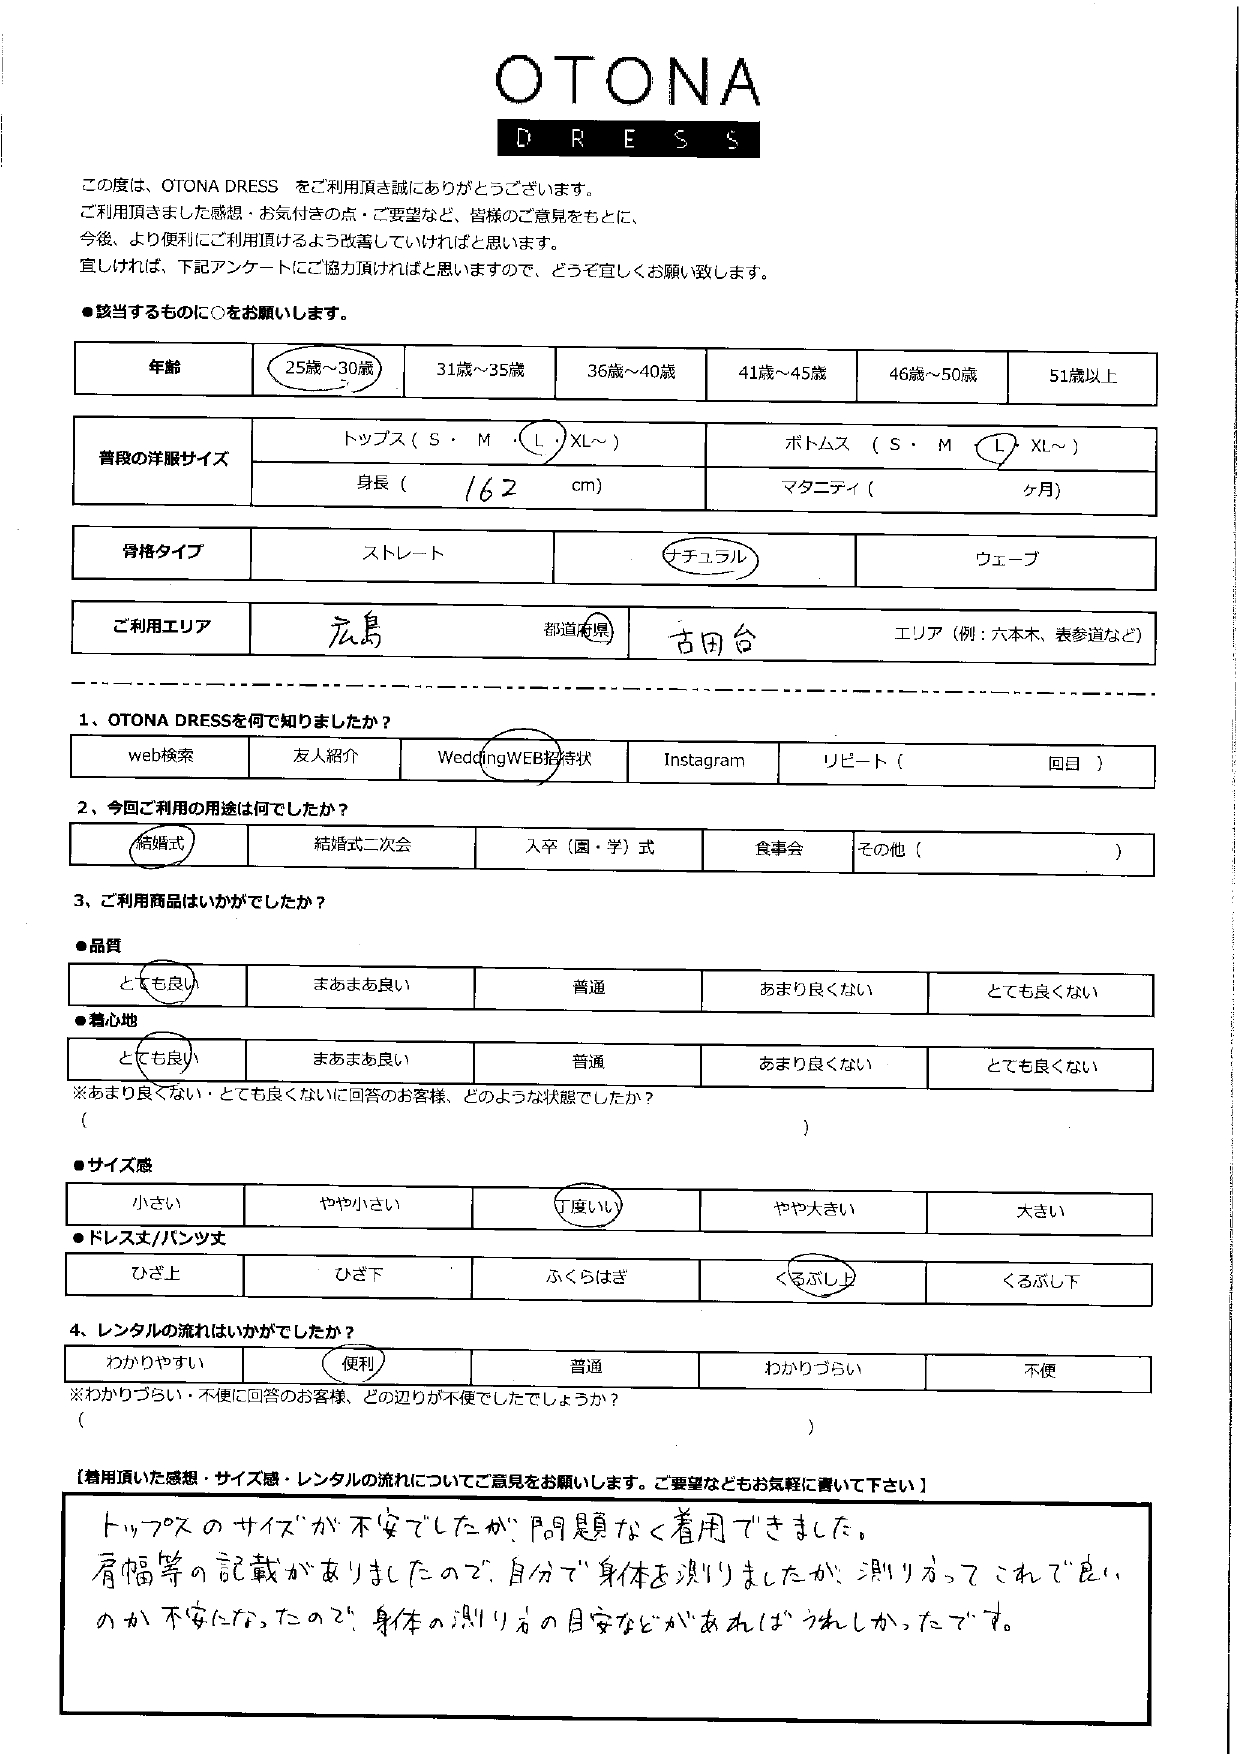 OTONA
DRESS
この度は、OTONA DRESS　をご利用頂き誠にありがとうございます。
ご利用頂きました感想・お気付きの点・ご要望など、皆様のご意見をもとに、
今後、より便利にご利用頂けるよう改善していければと思います。
宜しければ、下記アンケートにご協力頂ければと思いますので、どうぞ宜しくお願い致します。
●該当するものに○をお願いします。
年齢 25歳～30歳 31歳～35歳 36歳～40歳 41歳～45歳 46歳～50歳 51歳以上
普段の洋服サイズ
トップス ( S ・ M ・ L ・ XL～ ) ボトムス ( S ・ M ・ L ・ XL～ )
身長 ( 162 cm) マタニティ ( ヶ月)
骨格タイプ ストレート ナチュラル ウェーブ
ご利用エリア 広島 都道府県 古田台 エリア（例：六本木、表参道など）
1、OTONA DRESSを何で知りましたか？
web検索 友人紹介 WeddingWEB招待状 Instagram リピート（ 回目 ）
2、今回ご利用の用途は何でしたか？
結婚式 結婚式二次会 入卒（園・学）式 食事会 その他（ ）
3、ご利用商品はいかがでしたか？
●品質
とても良い まあまあ良い 普通 あまり良くない とても良くない
●着心地
とても良い まあまあ良い 普通 あまり良くない とても良くない
※あまり良くない・とても良くないに回答のお客様、どのような状態でしたか？
( )
●サイズ感
小さい やや小さい 丁度いい やや大きい 大きい
●ドレス丈/パンツ丈
ひざ上 ひざ下 ふくらはぎ くるぶし上 くるぶし下
4、レンタルの流れはいかがでしたか？
わかりやすい 便利 普通 わかりづらい 不便
※わかりづらい・不便に回答のお客様、どの辺りが不便でしたでしょうか？
( )
【着用頂いた感想・サイズ感・レンタルの流れについてご意見をお願いします。ご要望などもお気軽に書いて下さい】
トップスのサイズが不安でしたが、問題なく着用できました。
肩幅等の記載がありましたので、自分で身体を測りましたが、測り方ってこれで良い
のか不安になったので、身体の測り方の目安などがあればうれしかったです。